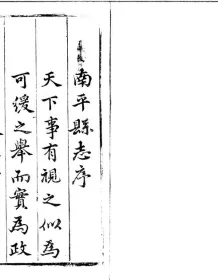 南平縣志序
天下事有視之似為
可緩之舉而實為政